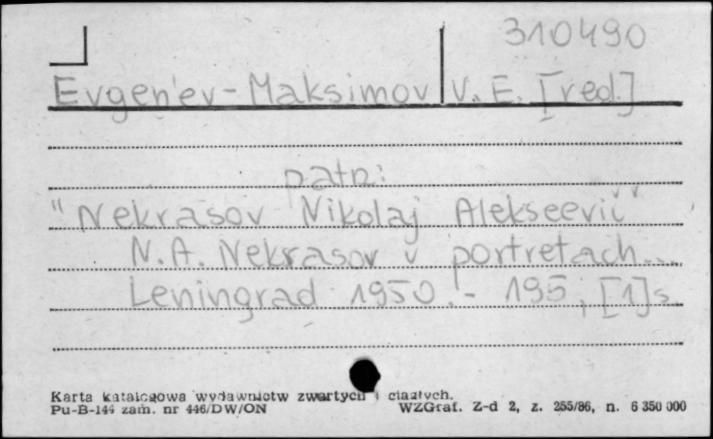 310490
Evgen'ev-Maksimov V. E. [red.]
patrz:
"Nekrasov Nikolaj Alekseevič"
N.A. Nekrasov v portretach...
Leningrad 1950.- 195, [1]s.
Karta katalogowa wydawnictw zwartych i ciągłych.
Pu-B-144 zam. nr 446/DW/ON
WZGraf. Z-d 2, z. 255/86, n. 6 350 000